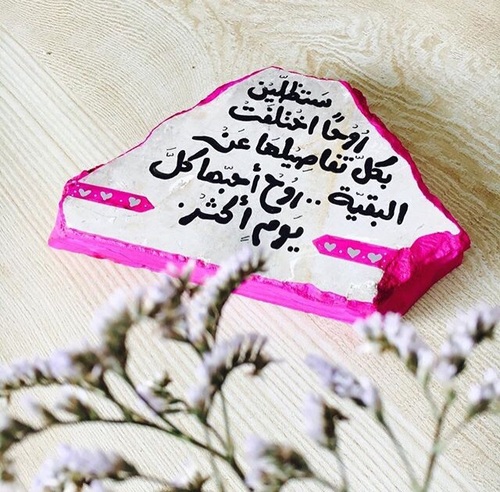 سَتظلّين
رُوحًا اختلفت
بكلّ تفاصيلها عَنْ
البقيّة .. رُوح أحبّها كلَّ
يَوم أكثر.